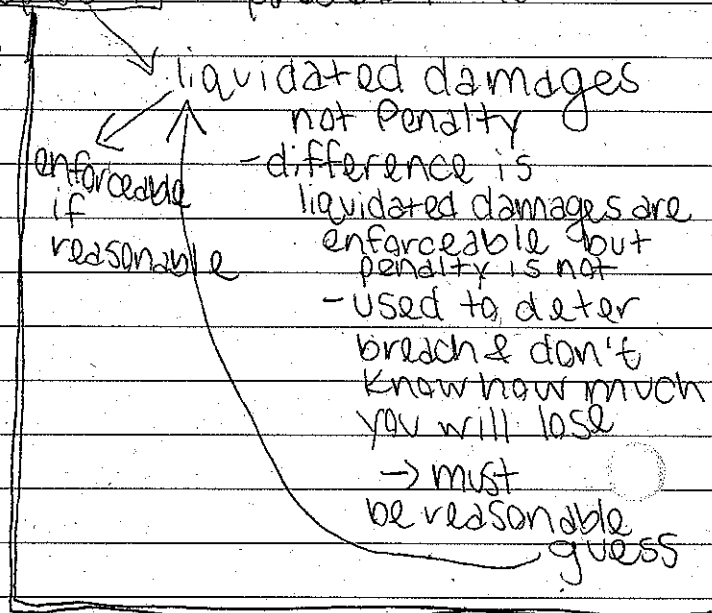 liquidated damages
not Penalty
enforceable
if
reasonable
-difference is
liquidated damages are
enforceable but
penalty is not
-used to deter
breach & don't
know how much
you will lose
→ must
be reasonable
guess